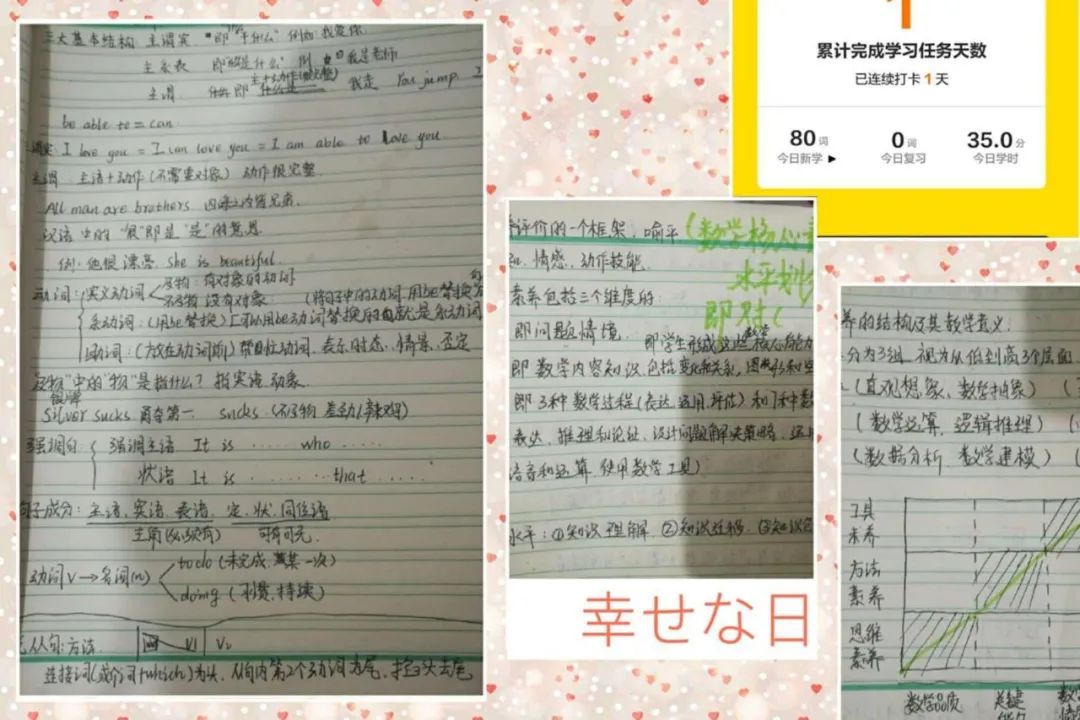 三大基本结构 主谓宾 "即"干什么" 例如:我爱你
主系表 即"谁是什么" 例 我是老师
主谓 我走 You jump
be able to = can
I love you = I can love you = I am able to love you
主谓 主语+动作(不需要对象) 动作很完整
All man are brothers 四海之内皆兄弟
汉语中的"很"即是"是"的意思
例:他很漂亮 she is beautiful
动词: 实义动词 及物:有对象的动词
不及物 没有对象
系动词:(用be替换)
助动词:(放在动词前)帮助动词,表示时态,情景,否定
"及物"中的"物"是指什么?指宾语,对象
银牌
Silver sucks 屑夺第一 sucks (不及物
强调句 强调主语 It is ...... who .....
状语 It is ...... that .....
句子成分: 主语,宾语,表语,定,状,同位语
主角(必须有) 可有可无
动词v→名词(n) to do (未完成,某一次)
doing (习惯,持续)
从句:方法 V1 V2
连接词(或介词+which)为头,从句内第2个动词为尾,掐头去尾
1
累计完成学习任务天数
已连续打卡 1 天
80词
今日新学
0词
今日复习
35.0分
今日学时
评价的一个框架,喻平(数学核心素
水平划分
情感,动作技能
素养包括三个维度的:
即对(
即问题情境
即学生形成这些核心
即数学内容知识,包括变化和关系,图形和空
即3种数学过程(表达,运用,评估)和7种数
表达,推理和论证,设计问题解决策略,运
语言和运算,使用数学工具)
水平:①知识理解 ②知识迁移 ③知识
幸せな日
养的结构及其数学意义:
分为3组,视为从低到高3个层面
(直观想象、数学抽象)
(数学运算,逻辑推理)
(数据分析,数学建模)
工具
素养
方法
素养
思维
素养
数学品质
关键